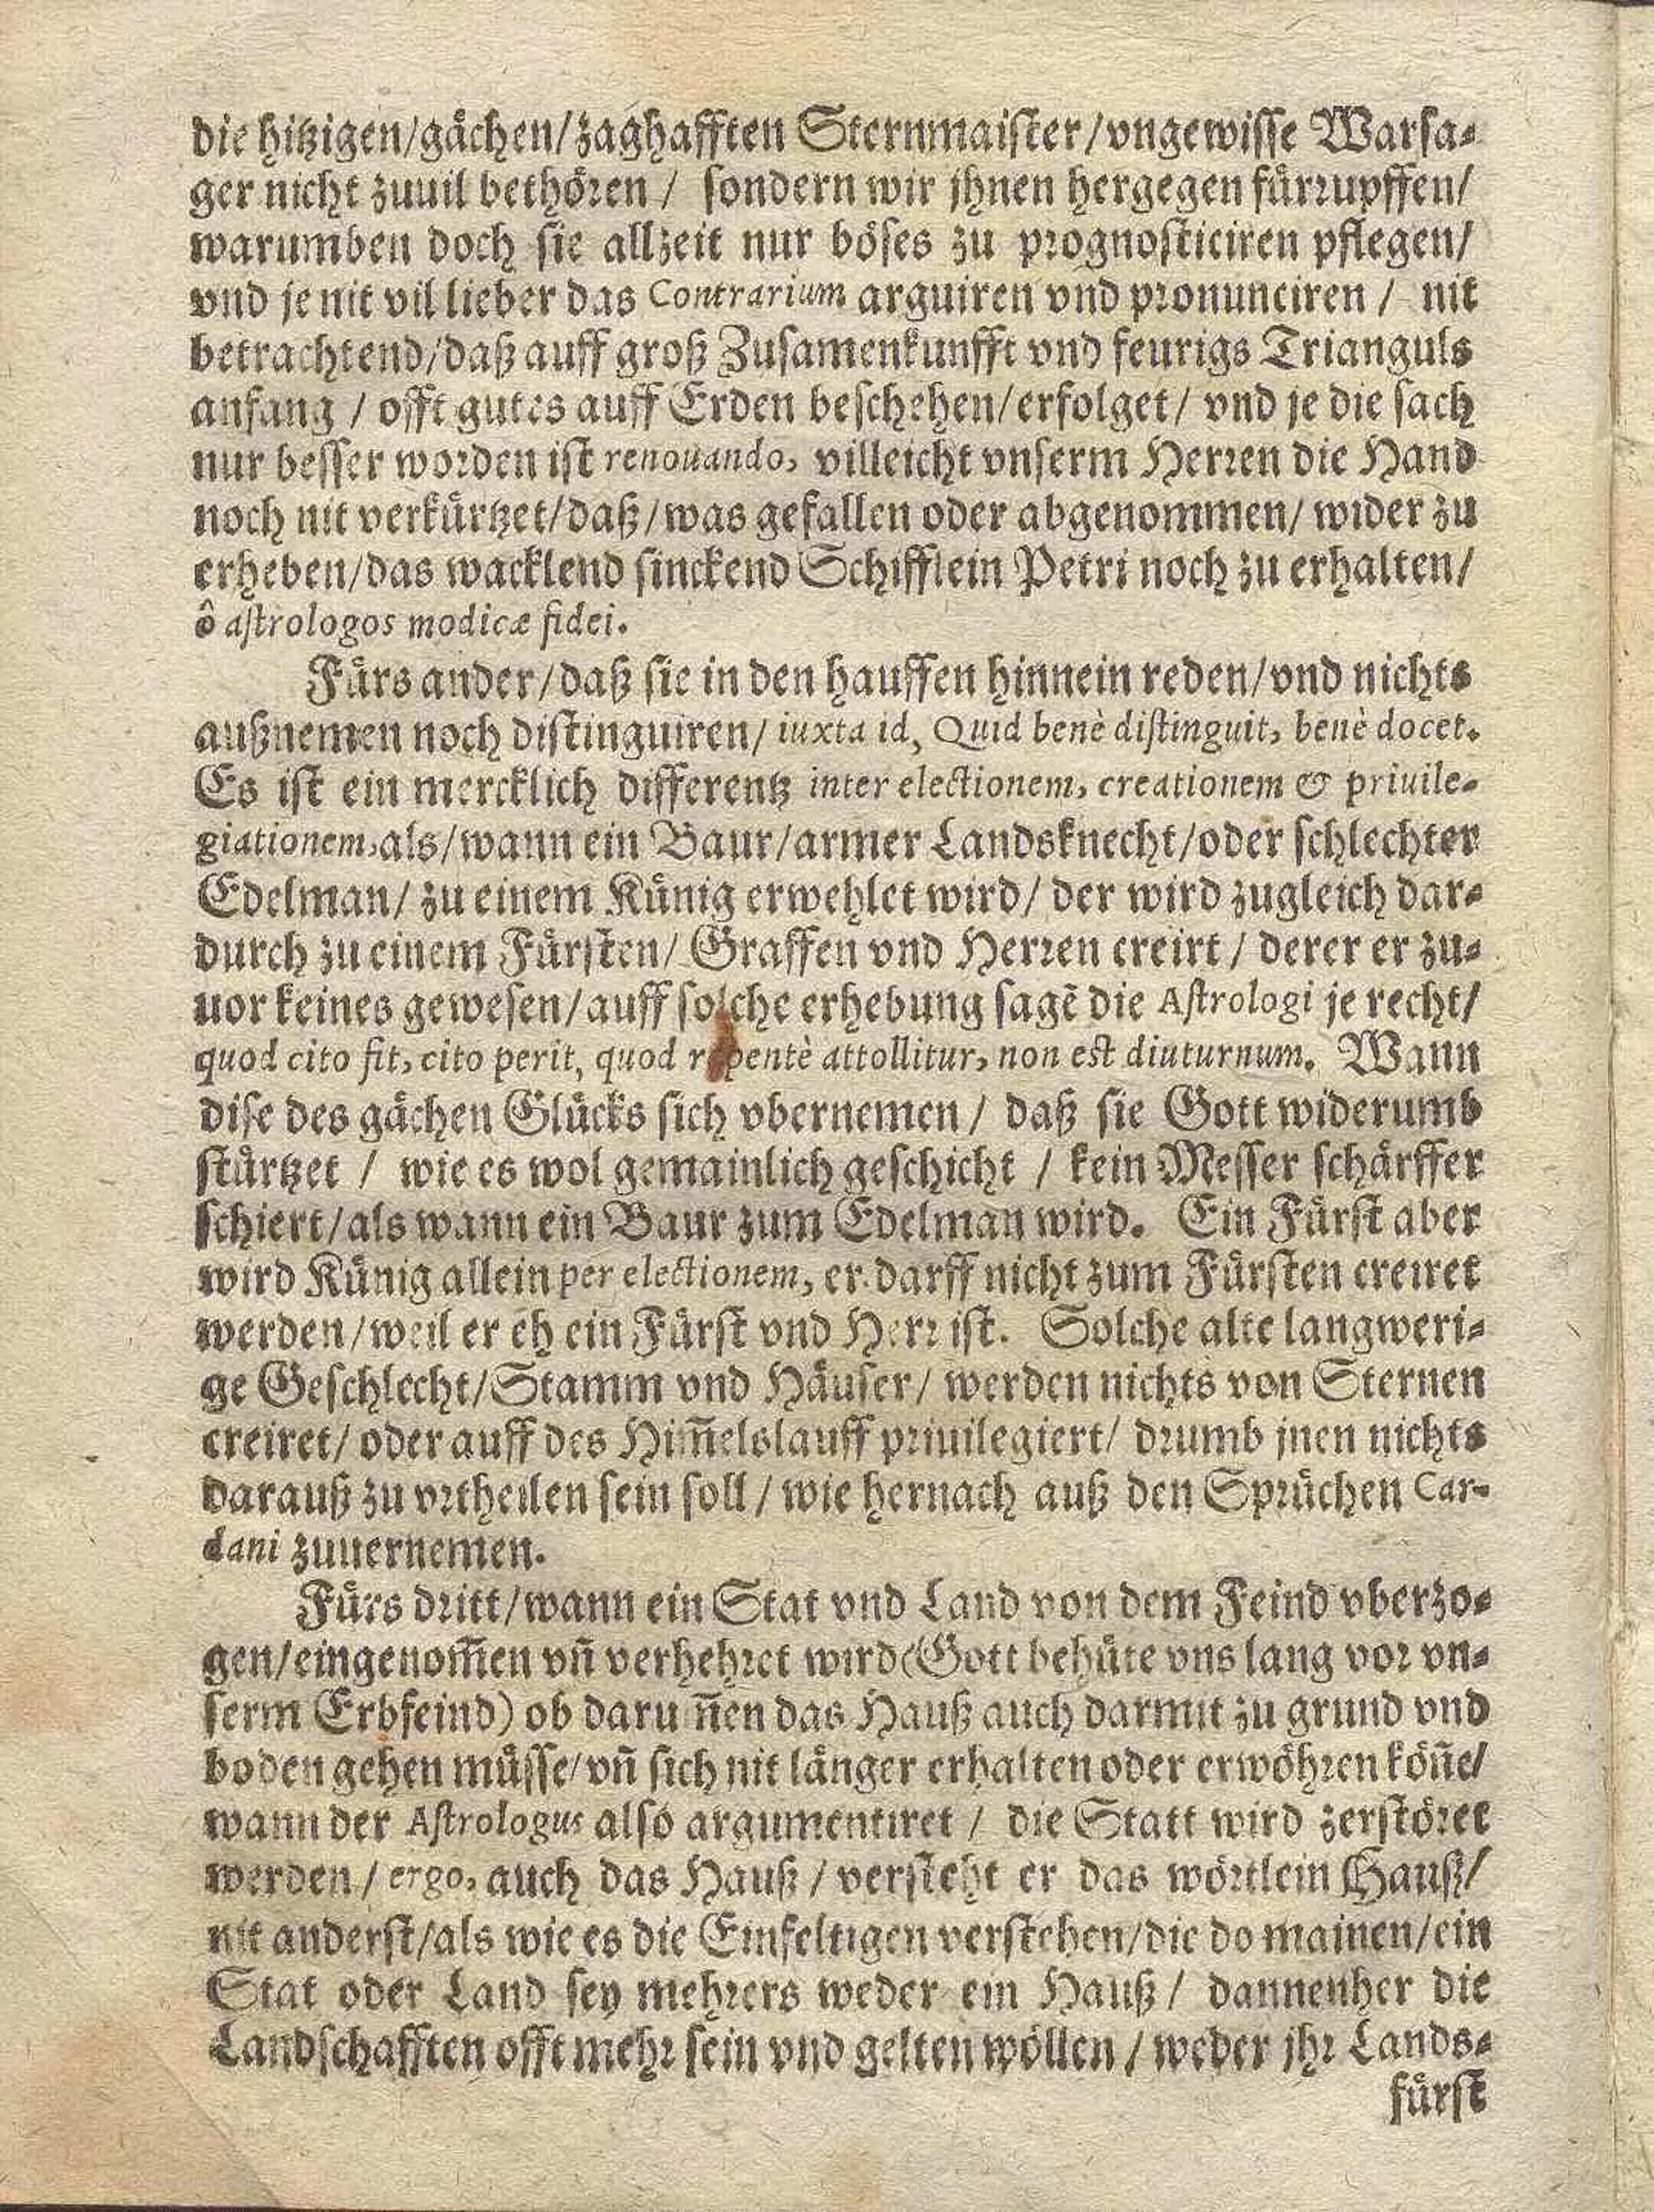 die hitzigen/gächen/zaghafften Sternmaister/vngewisse Warsa-
ger nicht zuuil bethören / sondern wir jhnen hergegen fürrupffen/
warumben doch sie allzeit nur böses zu prognosticiren pflegen/
vnd je nit vil lieber das Contrarium arguiren vnd pronunciren / nit
betrachtend/daß auff groß Zusamenkunfft vnd feurigs Trianguls
anfang / offt gutes auff Erden beschehen/erfolget/ vnd je die sach
nur besser worden ist renouando, villeicht vnserm Herren die Hand
noch nit verkürtzet/daß/was gefallen oder abgenommen/ wider zu
erheben/das wacklend sinckend Schifflein Petri noch zu erhalten/
ô astrologos modicæ fidei.
Fürs ander/daß sie in den hauffen hinnein reden/vnd nichts
außnemen noch distinguiren/ iuxta id, Quid benè distinguit, benè docet.
Es ist ein mercklich differentz inter electionem, creationem & priuile-
giationem,als/wann ein Baur/armer Landsknecht/oder schlechter
Edelman/ zu einem Künig erwehlet wird/ der wird zugleich dar-
durch zu einem Fürsten/ Graffen vnd Herren creirt / derer er zu-
uor keines gewesen/auff solche erhebung sagē die Astrologi je recht/
quod cito fit, cito perit, quod repentè attollitur, non est diuturnum. Wann
dise des gächen Glücks sich vbernemen / daß sie Gott widerumb
stürtzet / wie es wol gemainlich geschicht / kein Messer schärffer
schiert/als wann ein Baur zum Edelman wird. Ein Fürst aber
wird Künig allein per electionem, er darff nicht zum Fürsten creiret
werden/weil er eh ein Fürst vnd Herr ist. Solche alte langweri-
ge Geschlecht/Stamm vnd Häuser/ werden nichts von Sternen
creiret/ oder auff des Him̃elslauff priuilegiert/ drumb jnen nichts
darauß zu vrtheilen sein soll / wie hernach auß den Sprüchen Car-
dani zuuernemen.
Fürs dritt/wann ein Stat vnd Land von dem Feind vberzo-
gen/eingenom̃en vñ verhehret wird(Gott behüte vns lang vor vn-
serm Erbfeind) ob daruñen das Hauß auch darmit zu grund vnd
boden gehen müsse/vñ sich nit länger erhalten oder erwöhren köñe/
wann der Astrologus also argumentiret / die Statt wird zerstöret
werden / ergo, auch das Hauß / versteht er das wörtlein Hauß/
nit anderst/als wie es die Einfeltigen verstehen/die do mainen/ein
Stat oder Land sey mehrers weder ein Hauß / dannenher die
Landschafften offt mehr sein vnd gelten wöllen / weder jhr Lands-
fürst